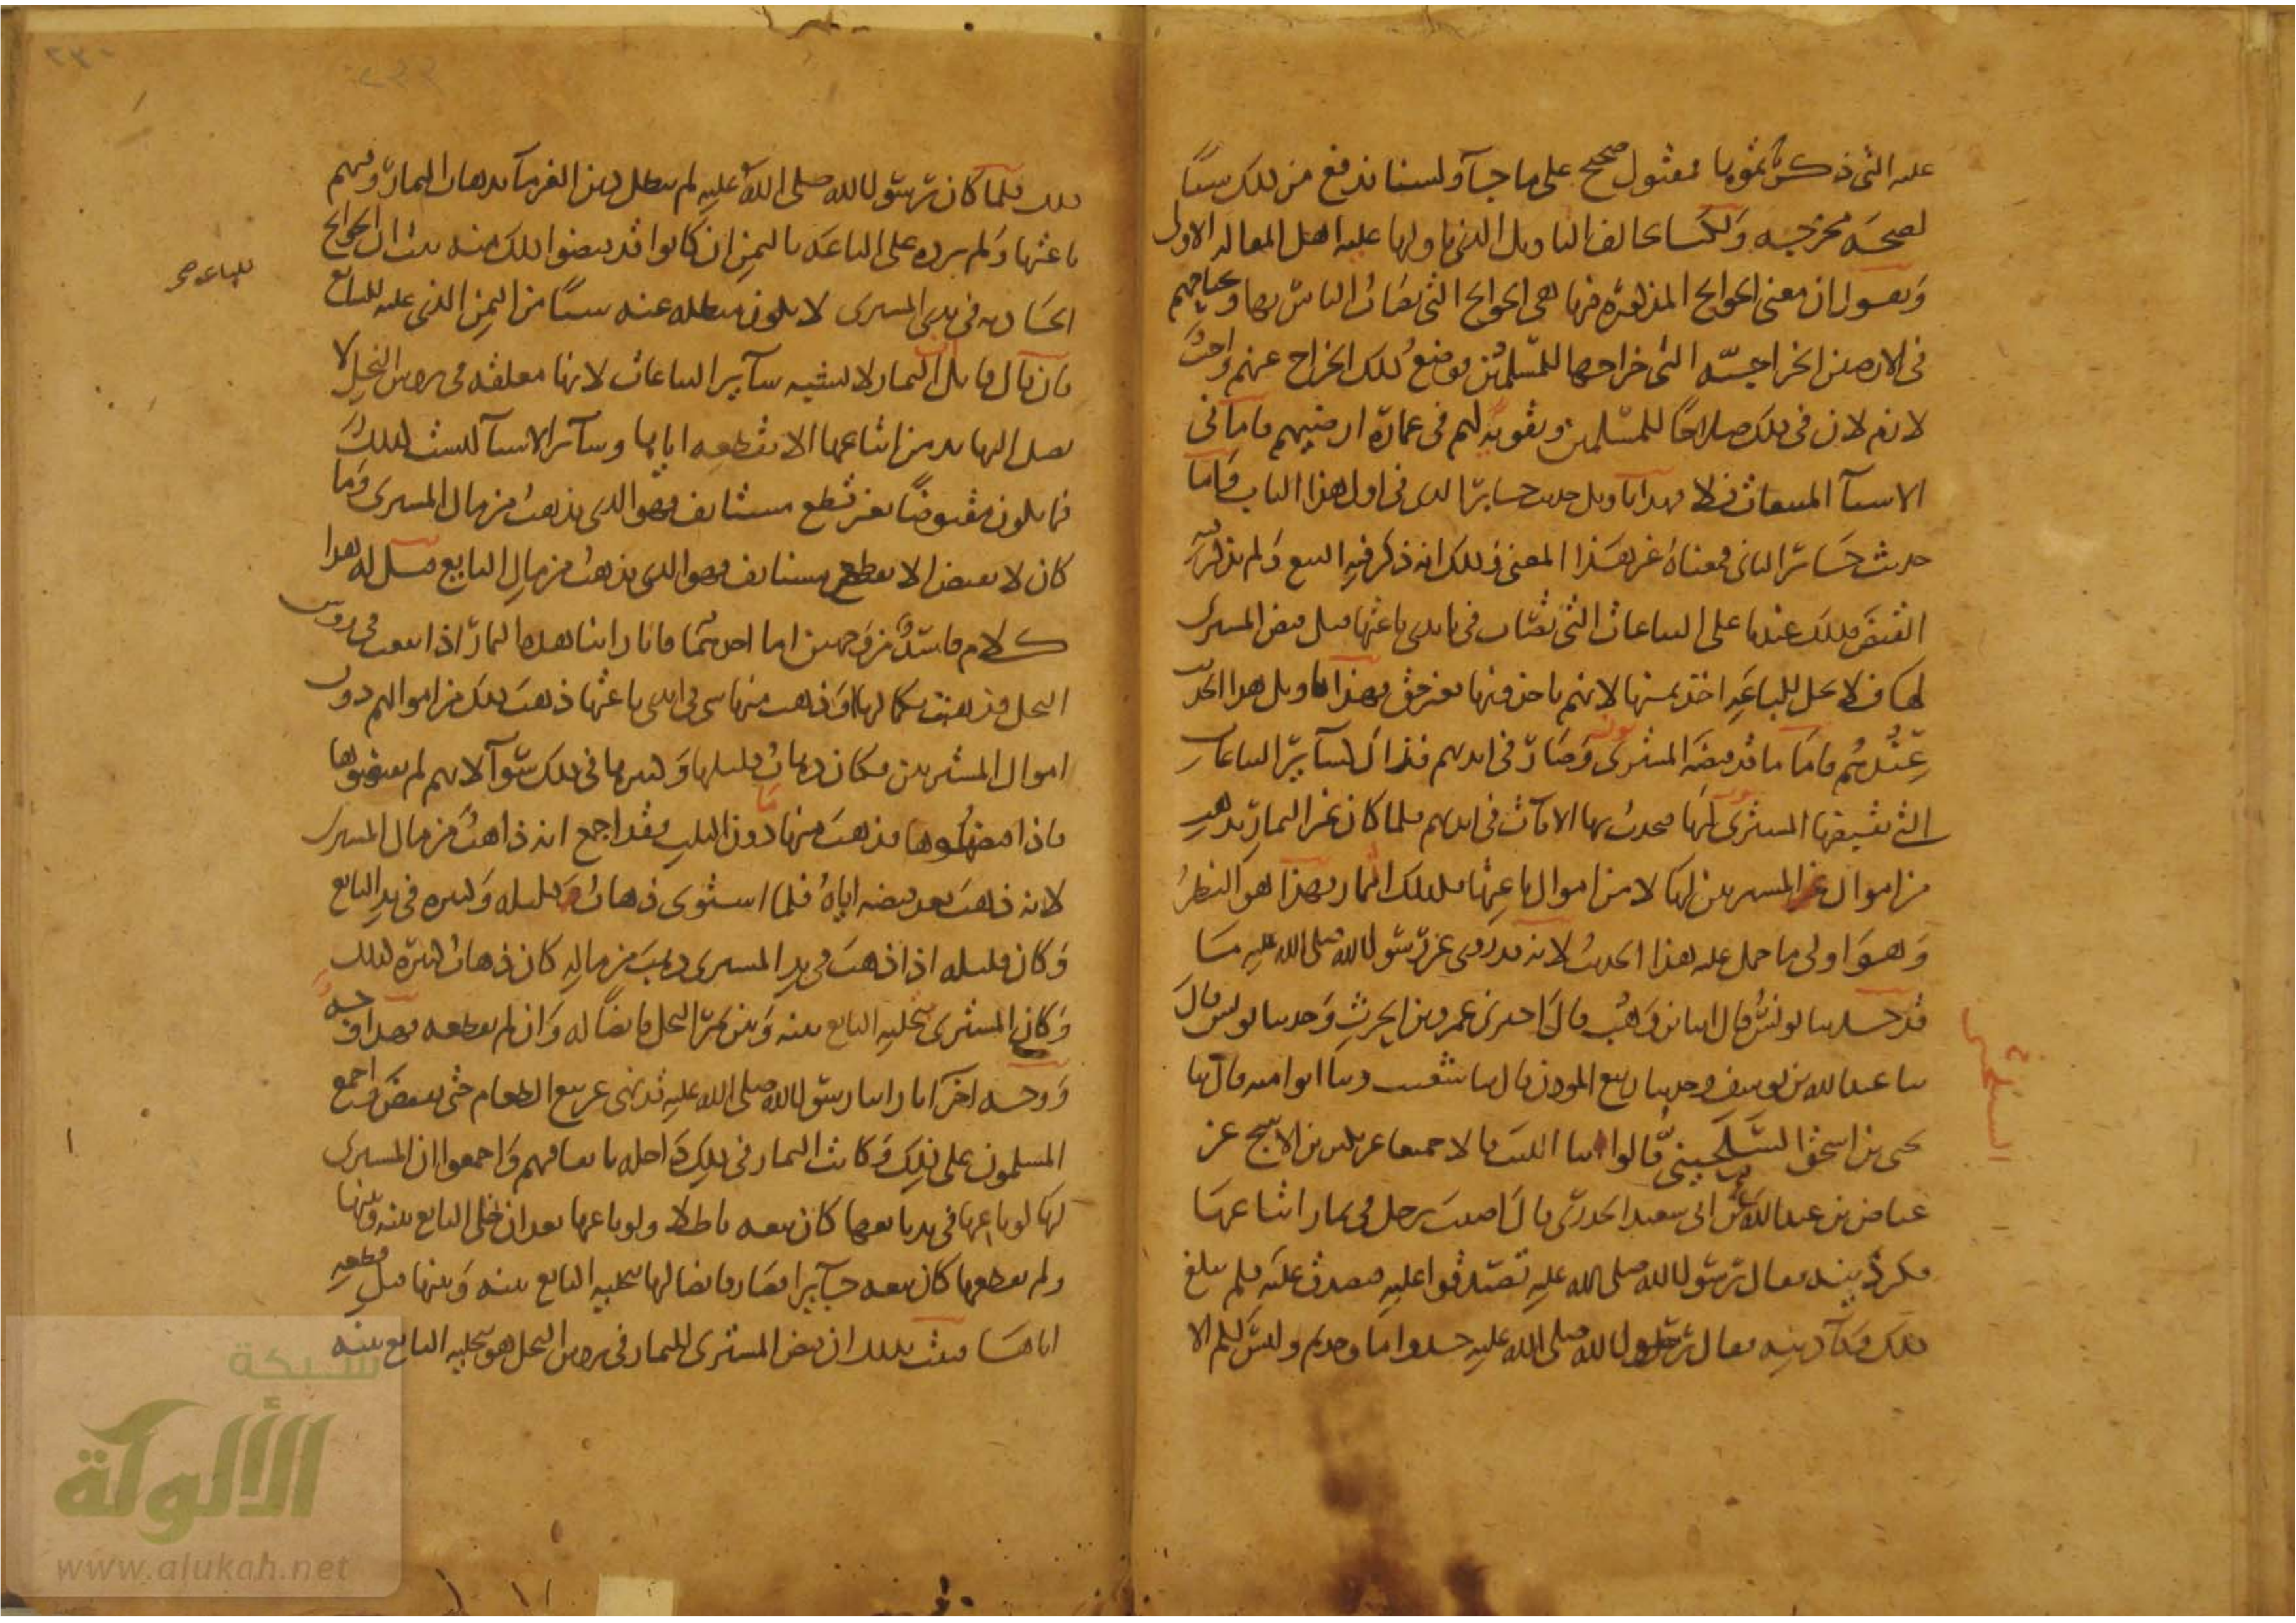 عليه التي ذكرتموها مقبول صحيح على ما جاء ولسنا ندفع من ذلك شيئا
لصحة مخرجه ولكنا نخالف التاويل الذي تاولها عليه اهل المقالة الاولى
ونقول ان معنى الجوائح المذكورة فيها هي الجوائح التي يصاب الناس بها وتجتاحهم
في الارضين الخراجية التي خراجها للمسلمين فوضع ذلك الخراج عنهم واجب
لازم لان في ذلك صلاحا للمسلمين وتقوية لهم في عمارة ارضيهم فاما في
الاشياء المبيعات فلا فهذا تاويل حديث جابر الذي في اول هذا الباب فاما
حديث جابر الثاني فمعناه غير هذا المعنى وذلك انه ذكر فيه البيع ولم يذكر فيه
القبض فذلك عندنا على البياعات التي تصاب في ايدي باعتها قبل قبض المشتري
لها فلا يحل للباعة اخذ ثمنها لانهم ياخذونها بغير حق فهذا تاويل هذا الحديث
عندهم فاما ما قد قبضه المشترون وصار في ايديهم فذاك كسائر البياعات
التي يقبضها المشترون لها فيحدث بها الافات في ايديهم فلما كان غير الثمار يذهب
من اموال المشترين لها لا من اموال باعتها فكذلك الثمار فهذا هو النظر
وهو اولى ما حمل عليه هذا الحديث لانه قد روي عن رسول الله صلى الله عليه ما
قد حدثنا يونس قال انا ابن وهب قال اخبرني عمرو بن الحرث وحدثنا يونس قال
ثنا عبد الله بن يوسف وحدثنا ربيع المؤذن قال ثنا شعيب وثنا ابو امية قال ثنا
السيلحيني
يحيى بن اسحق السيلحيني قالوا ثنا الليث قالا جميعا عن بكير بن الاشج عن
عياض بن عبد الله عن ابي سعيد الخدري قال اصيب رجل في ثمار ابتاعها
فكثر دينه فقال رسول الله صلى الله عليه تصدقوا عليه فتصدق عليه فلم يبلغ
ذلك وفاء دينه فقال رسول الله صلى الله عليه خذوا ما وجدتم وليس لكم الا
ذلك فلما كان رسول الله صلى الله عليه لم يبطل دين الغرماء بذهاب الثمار وفيهم
باعتها ولم يرده على الباعة بالثمن ان كانوا قد قبضوا ذلك منه ثبت ان الجوائح
للباعة صح
الحادثة في يدي المشتري لا يكون مبطلة عنه شيئا من الثمن الذي عليه للبائع
فان قال قائل ان الثمار لا تشبه سائر البياعات لانها معلقة في رووس النخل لا
يصل اليها يد من ابتاعها الا بقطعه اياها وسائر الاشياء ليست كذلك
فما يكون مقبوضا بغير قطع مستانف فهو الذي يذهب من مال المشتري وما
كان لا يقبض الا بقطع مستانف فهو الذي يذهب من مال البايع قيل له هذا
كلام فاسد من وجهين اما احدهما فانا راينا هذه الثمار اذا بيعت في رووس
النخل فذهبت بكمالها او ذهب منها شي في ايدي باعتها ذهب ذلك من اموالهم دون
اموال المشترين فكان ذهاب قليلها وكثيرها في ذلك سواء لانهم لم يقبضوها
فاذا قبضوها فذهب منها ما دون الثلث فقد اجمع انه ذاهب من مال المشتري
لانه ذهب بعد قبضه اياه فلما استوى ذهاب قليله وكثيره في يد البائع
وكان قليله اذا ذهب في يد المشتري ذهب من ماله كان ذهاب كثيره كذلك
وكان المشتري بتخلية البائع بينه وبين ثمر النخل قابضا له وان لم يقطعه فهذا وجه
ووجه اخر انا راينا رسول الله صلى الله عليه قد نهى عن بيع الطعام حتى يقبض واجمع
المسلمون على ذلك وكانت الثمار في ذلك داخلة باتفاقهم واجمعوا ان المشتري
لها لو باعها في يد بايعها كان بيعه باطلا ولو باعها بعد ان خلى البائع بينه وبينها
ولم يقطعها كان بيعه جائزا فصار قابضا لها بتخلية البائع بينه وبينها قبل قطعه
اياها فثبت بذلك ان قبض المشتري للثمار في رووس النخل هو تخلية البايع بينه
شبكة
الألوكة
www.alukah.net